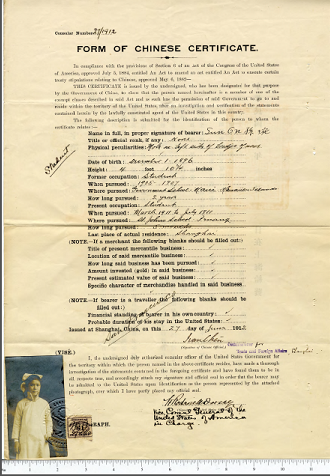 Consular Number
FORM OF CHINESE CERTIFICATE.
In compliance with the provisions of Section 6 of an act of the Congress of the United States
of America, approved July 5, 1884, entitled An Act to amend an act entitled An Act to execute certain
treaty stipulations relating to Chinese, approved May 6, 1882—
THIS CERTIFICATE is issued by the undersigned, who has been designated for that purpose
by the Government of China, to show that the person named hereinafter is a member of one of the
exempt classes described in said Act and as such has the permission of said Government to go to and
reside within the territory of the United States, after an investigation and verification of the statements
contained herein by the lawfully constituted agent of the United States in this country.
The following description is submitted for the identification of the person to whom the
certificate relates:—
Student
Name in full, in proper signature of bearer: Sun
Title or official rank, if any: None
Physical peculiarities: Mole on left side of bridge of nose
Date of birth: December 1, 1896
Height: 4 feet inches
Former occupation: Student
When pursued: 1905-1907
Where pursued: Government School, Hawaiian Islands
How long pursued: 2 years
Present occupation: Student
When pursued: March 1910 to July 1911
Where pursued: St. Johns School
How long pursued:
Last place of actual residence: Shanghai
(NOTE.—If a merchant the following blanks should be filled out:)
Title of present mercantile business:
Location of said mercantile business:
How long said business has been pursued:
Amount invested (gold) in said business:
Present estimated value of said business:
Specific character of merchandise handled in said business
(NOTE.—If bearer is a traveller the following blanks should be
filled out:)
Financial standing of bearer in his own country:
Probable duration of his stay in the United States:
Issued at Shanghai, China, on this 27 day of June 1912
(VISE.)
I, the undersigned duly authorized consular officer of the United States Government for
the territory within which the person named in the above certificate resides, have made a thorough
investigation of the statements contained in the foregoing certificate and have found them to be in
all respects true, and accordingly attach my signature and official seal in order that the bearer may
be admitted to the United States upon identification as the person represented by the attached
photograph, over which I have partly placed my official seal.
Vice Consul General of the
United States of America
in Charge.